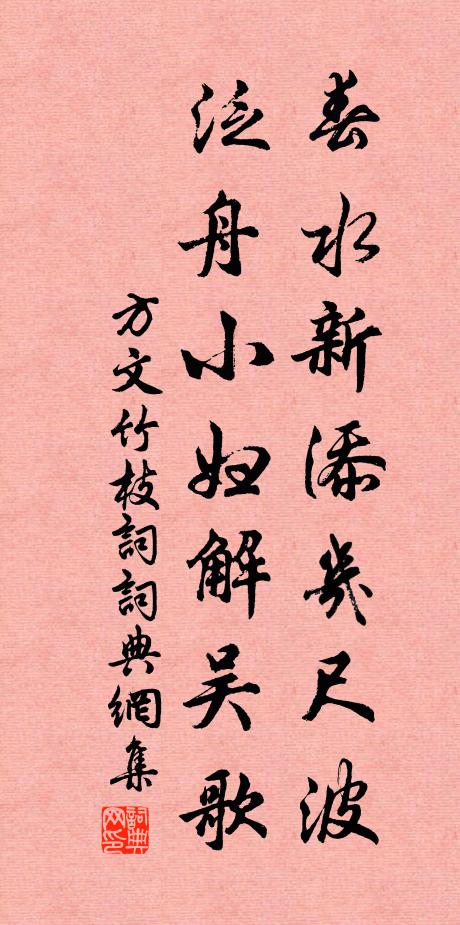 春水新添幾尺波
泛舟小婦解吳歌
方文竹枝詞詞典網集
詞典网印